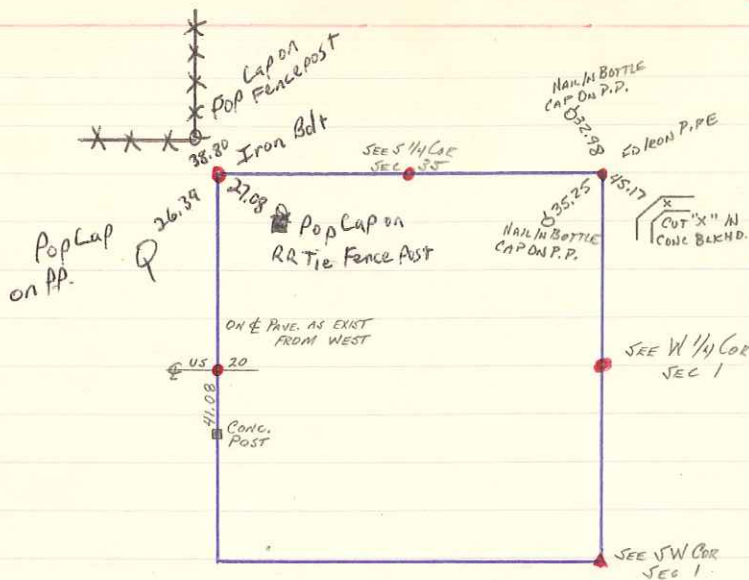 Cap on
Pop Fencepost
38.80
Iron Bolt
26.34
27.08
Pop Cap
on P.P.
Pop Cap on
RR Tie Fence Post
SEE S 1/4 COR
SEC 35
NAIL IN BOTTLE
CAP ON P.P.
32.98
IRON PIPE
45.17
35.25
NAIL IN BOTTLE
CAP ON P.P.
X
CUT "X" IN
CONC BLKHD.
ON ℄ PAVE. AS EXIST
FROM WEST
℄ US 20
41.08
CONC.
POST
SEE W 1/4 COR
SEC 1
SEE SW COR
SEC 1